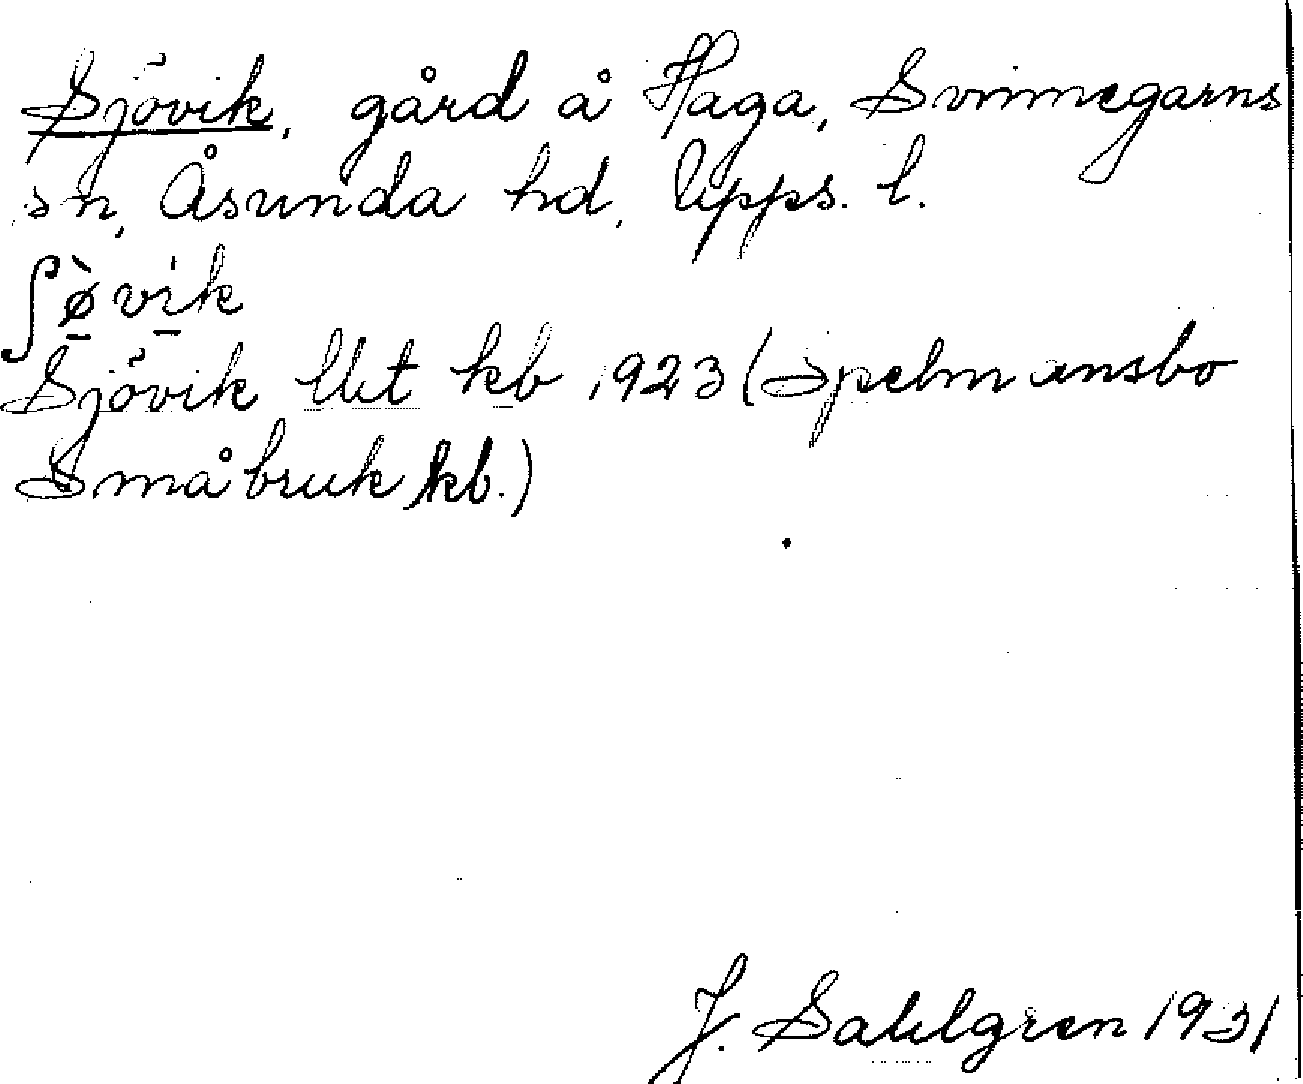 Sjövik, gård å Haga, Svinnegarns
sn, Åsunda hd, Upps. l.
ʃø̱̀vi̱k
Sjövik Ukt kb 1923 (Spelmansbo
Småbruk kb.)
J. Sahlgren 1931